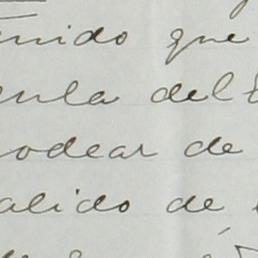 enido que
ula del
rodear de
alido de